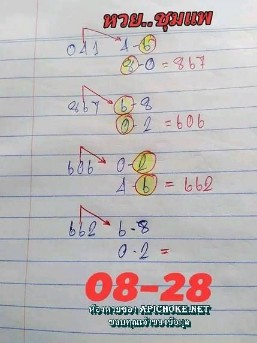 หวย..ชุมแพ
041 4-6
8-0 = 867
867 6-8
0-2 = 606
606 0-2
4-6 = 662
662 6-8
0-2 =
08-28
APICHOKE.NET